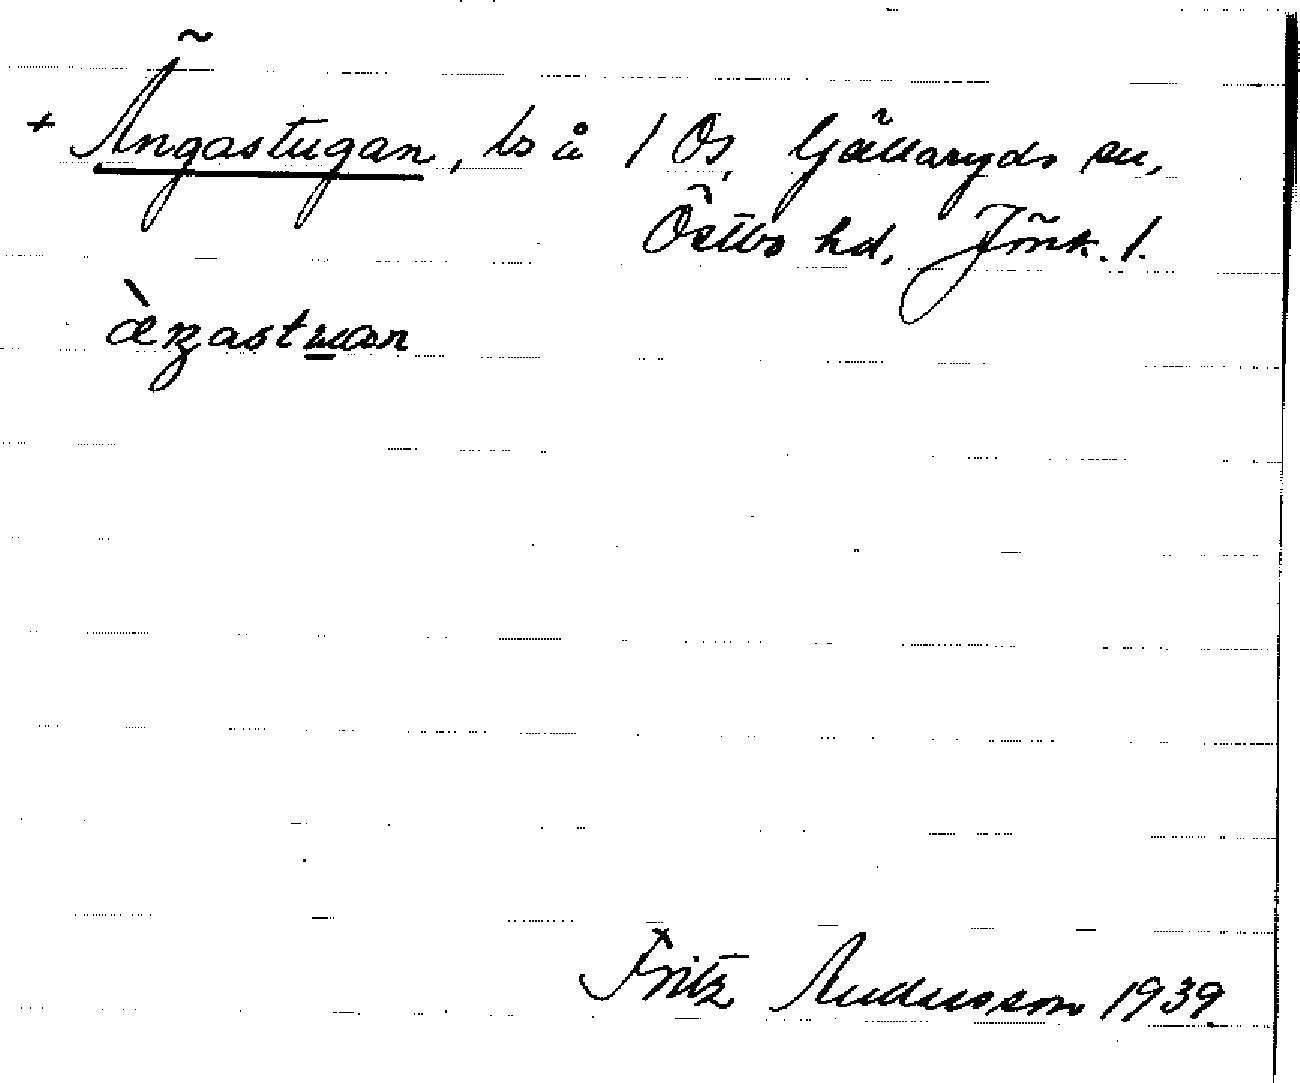 + Ängastugan, ts å 1 Os, Gällaryds sn,
Östbo hd, Jönk. l.
Fritz Andersson 1939